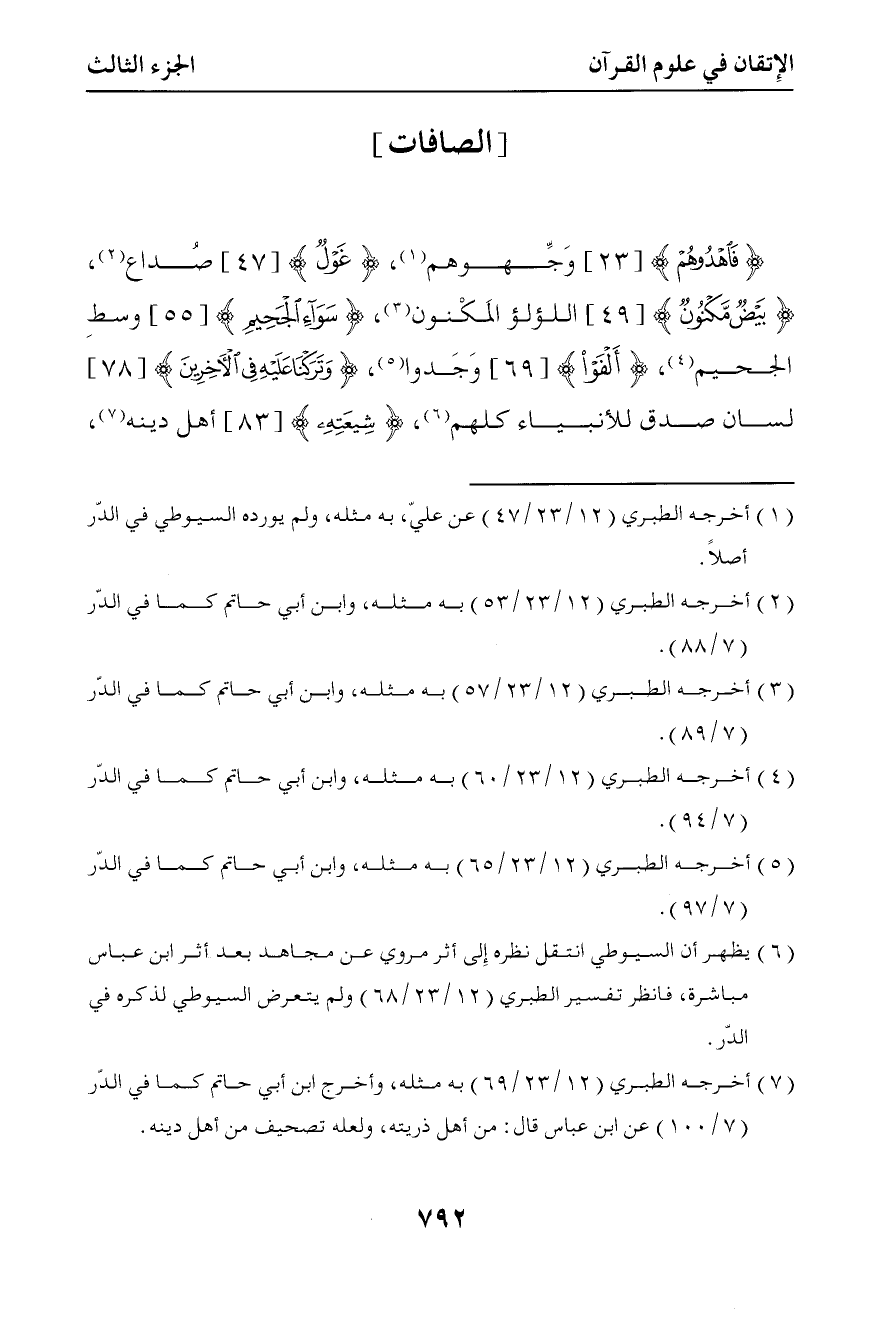 الإتقان في علوم القرآن
الجزء الثالث
[الصافات]
﴿ فَٱهْدُوهُمْ ﴾ [٢٣] وَجِّهوهم(١)، ﴿ غَوْلٌ ﴾ [٤٧] صُداع(٢)،
﴿ بَيْضٌ مَّكْنُونٌ ﴾ [٤٩] اللؤلؤ المَكْنون(٣)، ﴿ سَوَآءِ ٱلْجَحِيمِ ﴾ [٥٥] وسط
الجحيم(٤)، ﴿ أَلْفَوْا۟ ﴾ [٦٩] وَجَدوا(٥)، ﴿ وَتَرَكْنَا عَلَيْهِ فِى ٱلْـَٔاخِرِينَ ﴾ [٧٨]
لسان صدق للأنبياء كلهم(٦)، ﴿ شِيعَتِهِۦ ﴾ [٨٣] أهل دينه(٧)،
(١) أخرجه الطبري (٤٧/٢٣/١٢) عن عليّ، به مثله، ولم يورده السيوطي في الدّر
أصلاً.
(٢) أخرجه الطبري (٥٣/٢٣/١٢) به مثله، وابن أبي حاتم كما في الدّر
(٨٨/٧).
(٣) أخرجه الطبري (٥٧/٢٣/١٢) به مثله، وابن أبي حاتم كما في الدّر
(٨٩/٧).
(٤) أخرجه الطبري (٦٠/٢٣/١٢) به مثله، وابن أبي حاتم كما في الدّر
(٩٤/٧).
(٥) أخرجه الطبري (٦٥/٢٣/١٢) به مثله، وابن أبي حاتم كما في الدّر
(٩٧/٧).
(٦) يظهر أن السيوطي انتقل نظره إلى أثر مروي عن مجاهد بعد أثر ابن عباس
مباشرة، فانظر تفسير الطبري (٦٨/٢٣/١٢) ولم يتعرض السيوطي لذكره في
الدّر.
(٧) أخرجه الطبري (٦٩/٢٣/١٢) به مثله، وأخرج ابن أبي حاتم كما في الدّر
(١٠٠/٧) عن ابن عباس قال: من أهل ذريته، ولعله تصحيف من أهل دينه.
٧٩٢